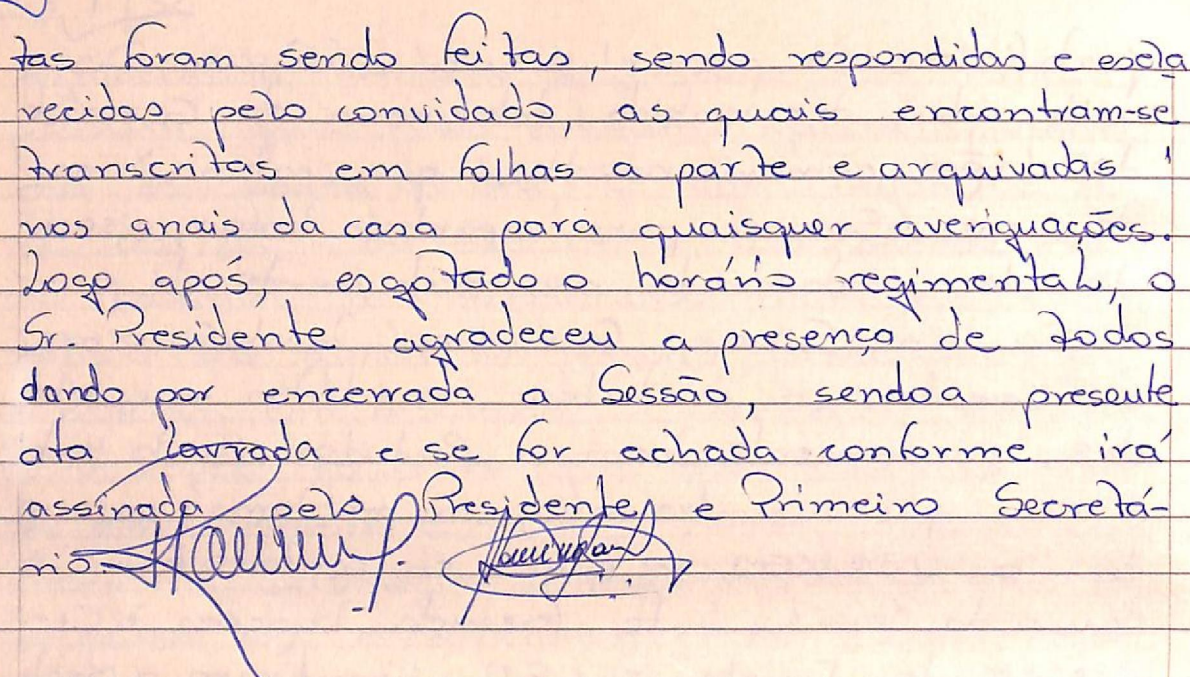 tas foram sendo feitas, sendo respondidas e escla
recidas pelo convidado, as quais encontram-se
transcritas em folhas a parte e arquivadas '
nos anais da casa para quaisquer averiguações.
Logo após, esgotado o horário regimental, o
Sr. Presidente agradeceu a presença de todos
dando por encerrada a Sessão, sendo a presente
ata lavrada e se for achada conforme irá
assinada pelo Presidente e Primeiro Secretá-
rio.